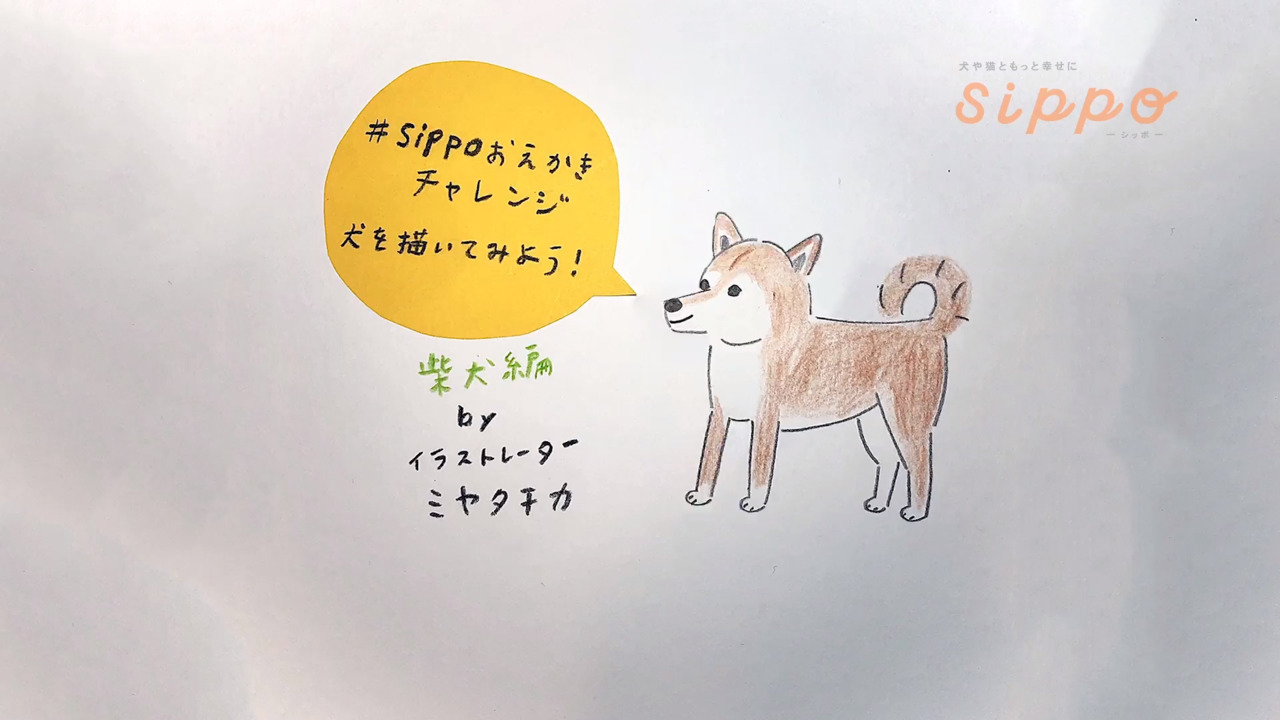 #sippoおえかき
チャレンジ
犬を描いてみよう!
柴犬編
by
イラストレーター
ミヤタチカ
犬や猫ともっと幸せに
sippo
ー シッポ ー